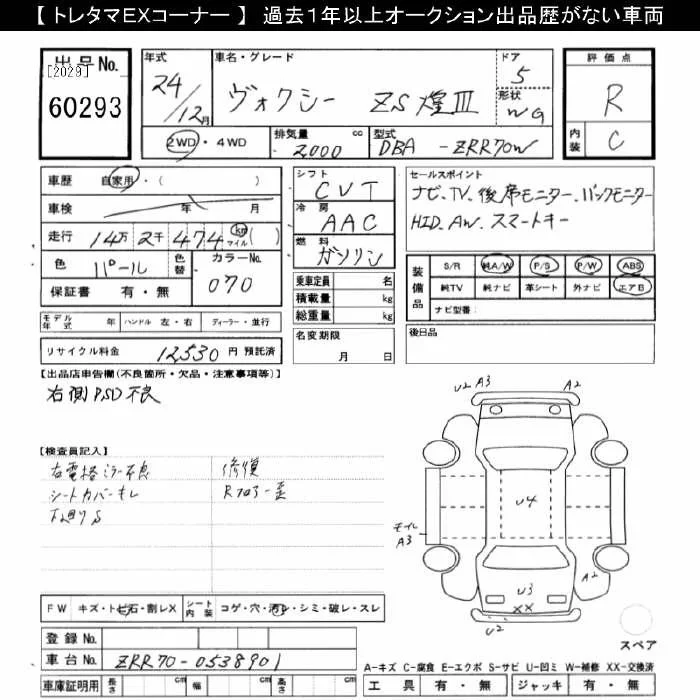 【 トレタマEXコーナー 】 過去1年以上オークション出品歴がない車両
出品No.
[2029]
60293
年式
24/12月
車名・グレード
ヴォクシー ZS煌Ⅲ
ドア
5
形状
WG
評価点
R
内装
C
2WD・4WD
排気量 cc
2000
型式
DBA -ZRR70W
車歴 自家用・( )
車検 年 月
走行 14万2千474 km マイル ( )
色 パール
色替
カラーNo.
070
保証書 有・無
シフト
CVT
冷房
AAC
燃料
ガソリン
乗車定員 名
積載量 kg
総重量 kg
セールスポイント
ナビ、TV、後席モニター、バックモニター
HID、AW、スマートキー
装備品
S/R 純A/W P/S P/W ABS
純TV 純ナビ 革シート 外ナビ エアB
ナビ型番:
モデル年式 年 ハンドル 左・右 ディーラー・並行
リサイクル料金 12,530 円 預託済
名変期限
月 日
後日品
【出品店申告欄(不良箇所・欠品・注意事項等)】
右側PSD不良
【検査員記入】
右電格ミラー不良
シートカバーキレ
下廻りS
修復
Rフロアー歪
U2 A3
A2
U4
モール
A3
A2
U3
XX
U2
FW キズ・トビ石・割レX
シート内装 コゲ・穴・汚レ・シミ・破レ・スレ
登録No.
車台No. ZRR70-0538901
車庫証明用 長さ cm 幅 cm 高さ cm
スペア
A-キズ C-腐食 E-エクボ S-サビ U-凹ミ W-補修 XX-交換済
工具 有・無 ジャッキ 有・無